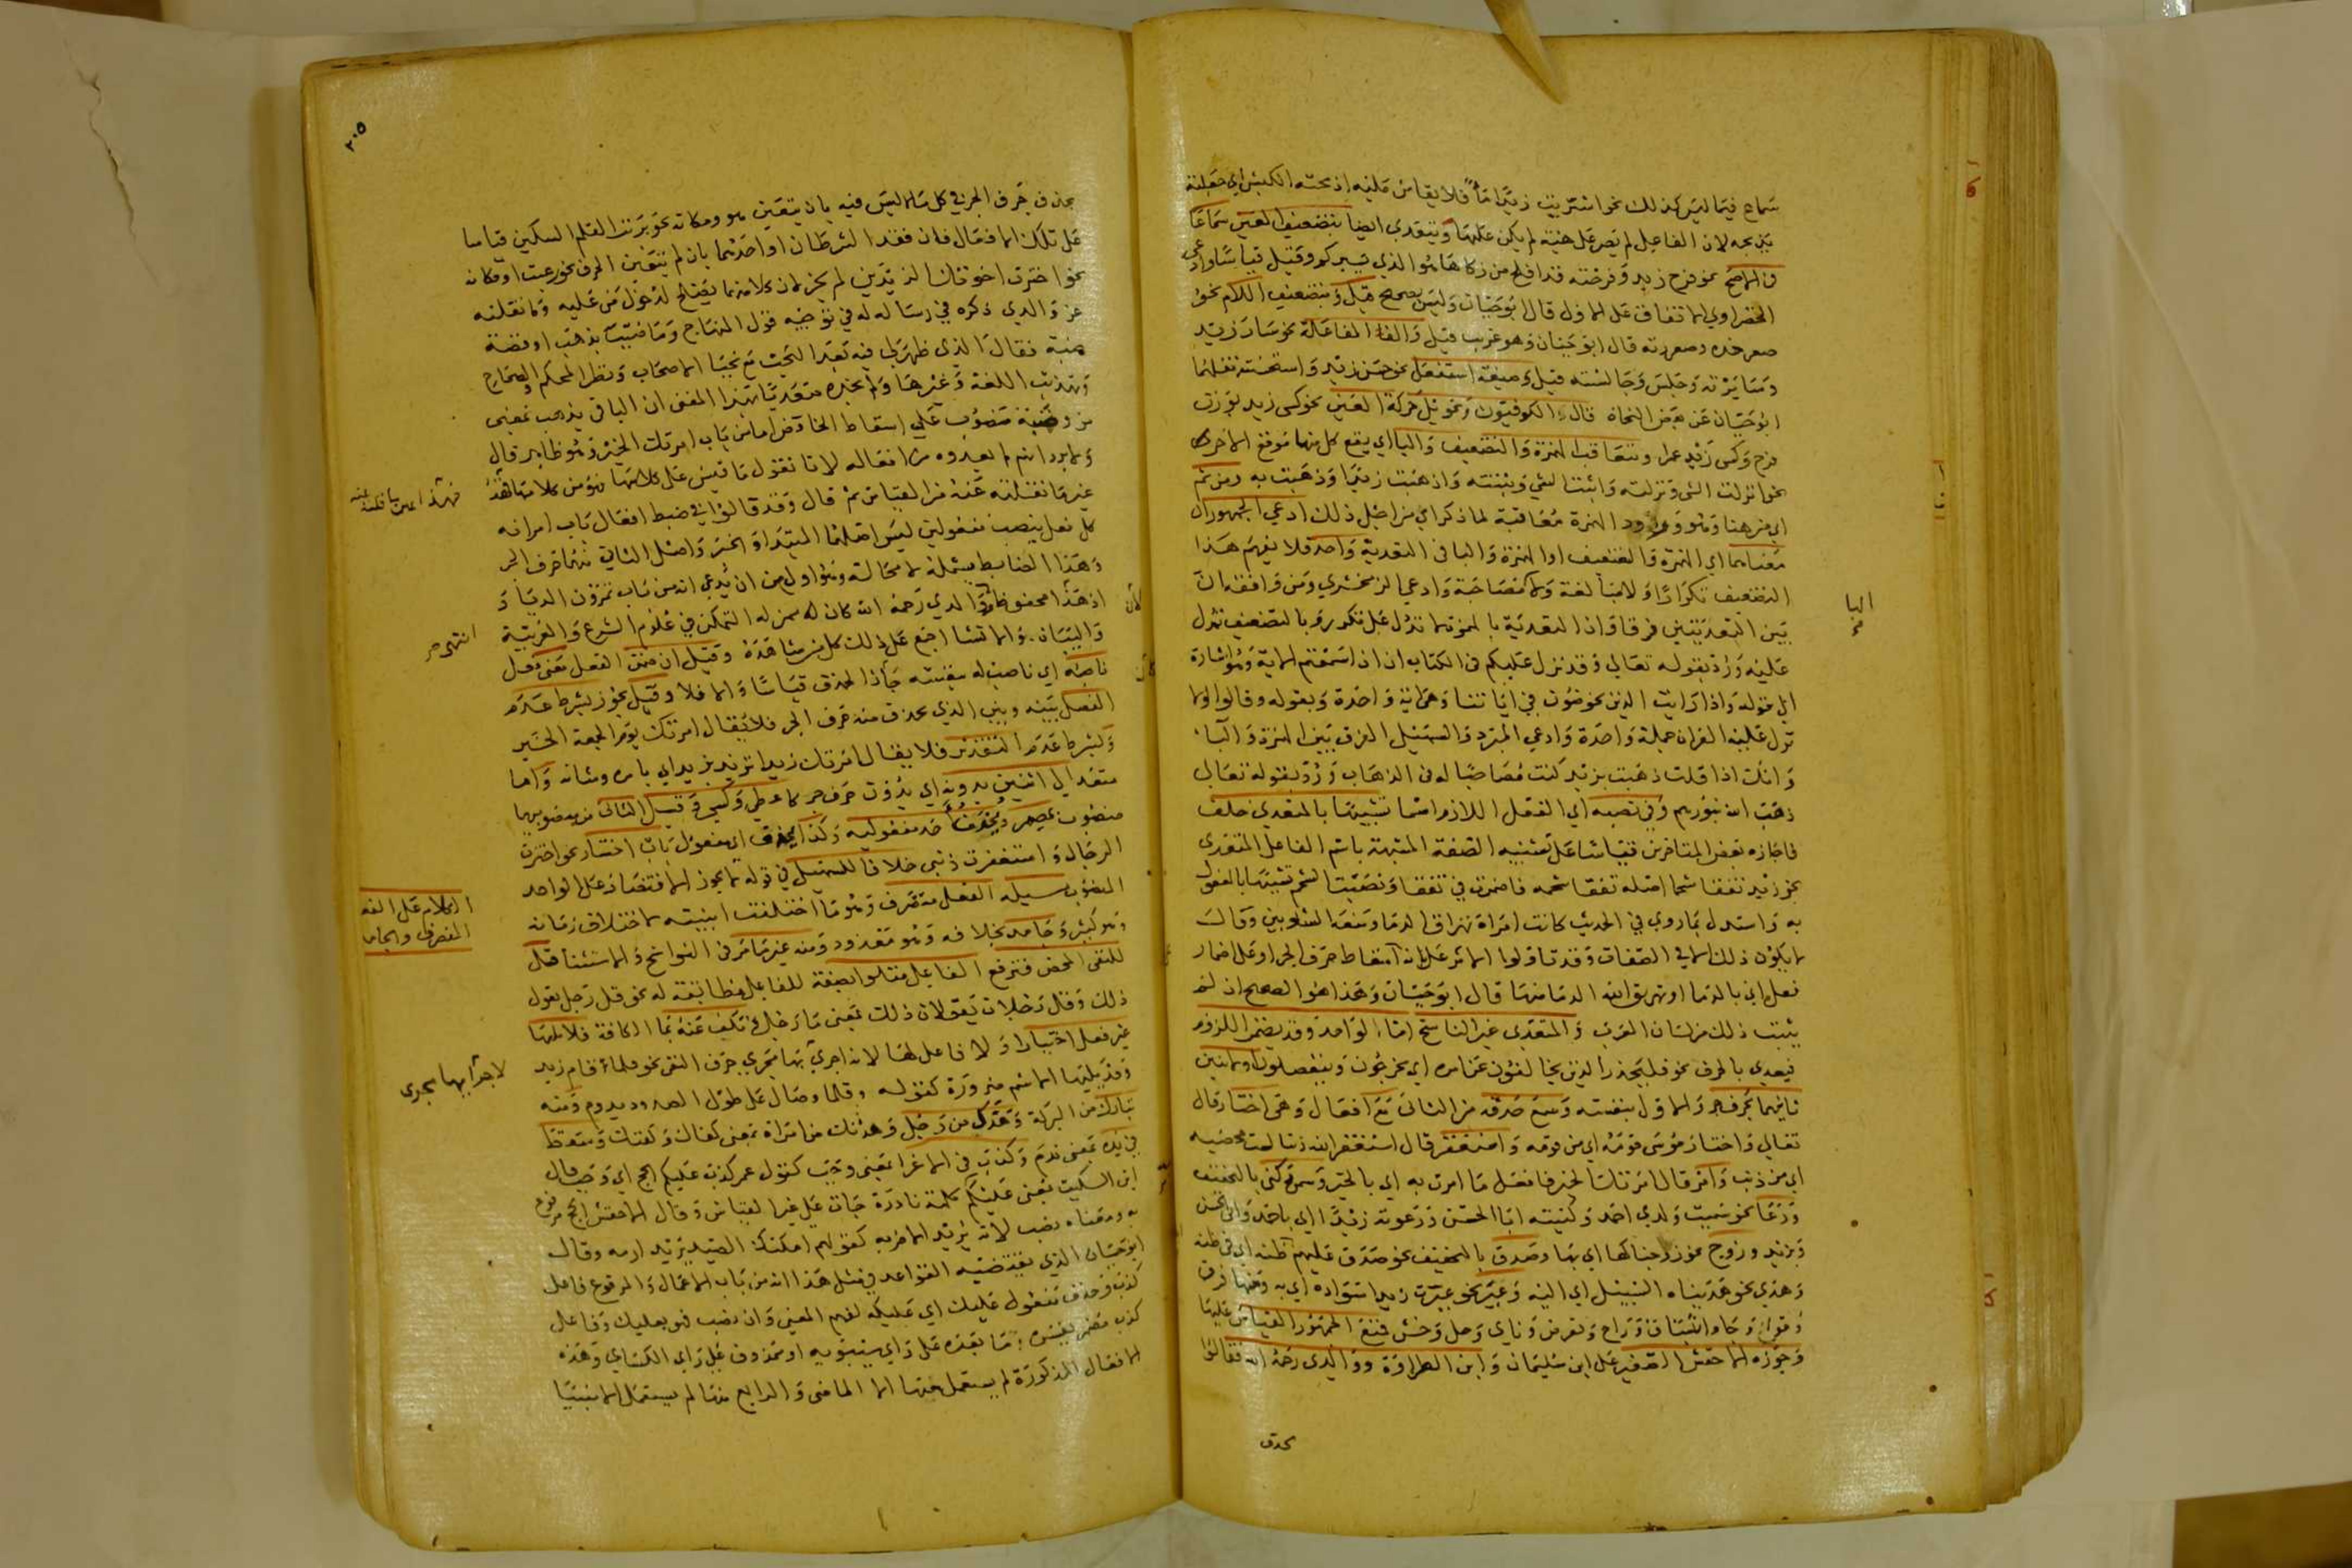 سماع فيما ليس كذلك نحو اشتريت زيدا فلا يقاس عليه اذبحته الكبش اي جعلته
يذبحه لان الفاعل لم يصر على هيئة لم يكن عليها ويتعدي ايضا بتضعيف العين سماعا
في الاصح نحو فرح زيد وفرحته قد افلح من زكاها هو الذي يسيركم وقيل قياسا وادعى
الخضراوي الاتفاق على الاول قال ابو حيان وليس بصحيح قيل وبتضعيف اللام نحو
صعر خده وصعررته قال ابو حيان وهو غريب قيل والف المفاعلة نحو سار زيد
وسايرته وجلس وجالسته قيل وصيغة استفعل نحو حسن زيد واستحسنته نقلهما
ابو حيان عن بعض النحاة قال الكوفيون وتحويل حركة العين نحو كسي زيد بوزن
فرح وكسي زيد عمرا وتتعاقب الهمزة والتضعيف والبا اي يقع كل منها موقع الاخر
نحو انزلت الشي ونزلته واثبت الشي وثبته واذهبت زيدا وذهبت به ومن ثم
اي من هنا وهو ورود الهمزة معاقبة لما ذكر اي من اجل ذلك ادعي الجمهور ان
معناهما اي الهمزة والتضعيف او الهمزة والبا في التعدية واحد فلا يفهم هذا
التضعيف تكرارا ولا مبالغة ولا مصاحبة وادعي الزمخشري ومن وافقه ان
بين التعديتين فرقا وان التعدية بالهمزة لا تدل على تكرر وبالتضعيف تدل
عليه ورد بقوله تعالي وقد نزل عليكم في الكتاب ان اذا سمعتم الاية وهو اشارة
الي قوله واذا رايت الذين يخوضون في اياتنا وهي اية واحدة وبقوله وقالوا لولا
نزل عليه القران جملة واحدة وادعي المبرد والسهيلي الفرق بين الهمزة والبا
وانك اذا قلت ذهبت بزيد كنت مصاحبا له في الذهاب ورد بقوله تعالي
ذهب الله بنورهم وفي نصبه اي الفعل اللازم اسما تشبيها بالمتعدي خلف
فاجازه بعض المتاخرين قياسا على تشبيه الصفة المشبهة باسم الفاعل المتعدي
نحو زيد تفقا شحما اصله تفقا شحمه فاضمرت في تفقا ونصبت الشحم تشبيها بالمفعول
به واستدل بما روي في الحديث كانت امراة تهراق الدما ومنعه الشلوبين وقال
لا يكون ذلك الا في الصفات وقد تاولوا الاثر على انه اسقاط حرف الجر او على اضمار
فعل اي بالدما او يهريق الله الدما منها قال ابو حيان وهذا هو الصحيح اذ لم
يثبت ذلك من لسان العرب والمتعدي غير الناسخ اما الواحد وقد يضمن اللزوم
فيعدي بالحرف نحو فليحذر الذين يخالفون عن امره اي يخرجون وينفصلون او لاثنين
ثانيهما بحرف جر والاول بنفسه وسمع حذفه من الثاني مع افعال وهي اختار قال
تعالي واختار موسى قومه اي من قومه واستغفر قال استغفر الله ذنبا لست محصيه
اي من ذنب وامر قال امرتك الخير فافعل ما امرت به اي بالخير وسمى وكنى بالتخفيف
ودعا نحو سميت ولدي احمد وكنيته ابا الحسن ودعوته زيدا اي باحمد وابي الحسن
وبزيد وزوج نحو زوجناكها اي بها وصدق بالتخفيف نحو صدق عليهم ظنه اي في ظنه
وهدي نحو هديناه السبيل اي اليه وعير نحو عيرت زيدا سواده اي به
وجوزه الاخفش الصغير علي ابن سليمان وابن الطراوة ووالدي رحمه الله فقالوا
بحذف
البا
٢٠٥
بحذف حرف الجر في كل ما لا لبس فيه بان يتعين هو ومكانه نحو بريت القلم السكين قياسا
على تلك الافعال فان فقد الشرطان او احدهما بان لم يتعين الحرف نحو رغبت او مكانه
نحو اخترت اخوتك الزيدين لم يجز لان كلا منهما يصلح لدخول من عليه وما نقلته
عن والدي ذكره في رسالة له في توجيه قول المنهاج وما ضبب بذهب او فضة
ضبة فقال الذي ظهر لي فيه بعد البحث مع نجبا الاصحاب ونظر المحكم والصحاح
وتهذيب اللغة وغيرها ولم نجده متعديا بهذا المعنى ان البا في بذهب بمعنى
من وضبة منصوب على اسقاط الخافض اما من باب امرتك الخير وهو ظاهر قال
ولا يرد انهم لم يعدوه من افعاله لانا نقول ما قيس على كلامها فهو من كلامها
غير ما نقلته عنه من القياس ثم قال وقد قالوا في ضبط افعال باب امر انه
كل فعل ينصب مفعولين ليس اصلهما المبتدا والخبر واصل الثاني منهما حرف الجر
وهذا الضابط يشمله لا محالة وهو اولى من ان يدعي انه من باب تمرون الديار
اذ هذا محفوظ ووالدي رحمه الله كان له من التمكن في علوم الشرع والعربية
والبيان والانشا اجمع على ذلك كل من شاهده وقيل ان ضمن الفعل معنى فعل
ناصبه اي ناصب له بنفسه جاز الحذف قياسا والا فلا وقيل يجوز بشرط عدم
الفصل بينه وبين الذي يحذف منه حرف الجر فلا يقال امرتك يوم الجمعة الخير
وبشرط عدم التقدير فلا يقال امرتك زيدا تريد بزيد اي بامره وشانه واما
متعد الى اثنين بدونه اي بدون حرف جر كاعطى وكسى وقيل الثاني من منصوبيهما
منصوب بمضمر
الرجال واستغفرت ذنبي خلافا للسهيلي في قوله لا يجوز الاقتصار على الواحد
المنصوب مسيلة الفعل متصرف وهو ما اختلفت ابنيته لاختلاف زمانه
وهو كثير وجامد بخلافه وهو معدود ومنه غير ما مر في النواسخ والاستثنا قل
للنفي المحض فترفع الفاعل متلوا بصفة للفاعل مطابقة له نحو قل رجل يقول
ذلك وقل رجلان يقولان ذلك بمعنى ما رجل وتكف عنه بما الكافة فلا يليها
غير فعل اختيارا ولا فاعل لها لانه اجري بها مجرى حرف النفي نحو قلما قام زيد
وقد يليها الاسم ضرورة كقوله وقلما وصال على طول الصدود يدوم ومنه
تبارك من البركة وهدك من رجل وهدتك من امراة بمعنى كفاك وكفتك وسقط
في يده بمعنى ندم وكذب في الاغرا بمعنى وجب كقول عمر كذب عليكم الحج اي وجب قال
ابن السكيت بمعنى عليكم كلمة نادرة جات على غير القياس وقال الاخفش الحج مرفوع
به ومعناه نصب لانه يريد الامر به كقولهم امكنك الصيد يريد ارمه وقال
ابو حيان الذي تقتضيه القواعد في مثل هذا انه من باب الاعمال والمرفوع فاعل
كذب وحذف مفعول عليك اي عليكه لفهم المعنى وان نصب فهو بعليك وفاعل
كذب مضمر يفسره ما بعده على راي سيبويه او محذوف على راي الكسائي وهذه
الافعال المذكورة لم يستعمل منها الا الماضي والرابع منها لم يستعمل الا مبنيا
انتهى
الكلام على الفعل
المتصرف والجامد
لاجرائها مجرى